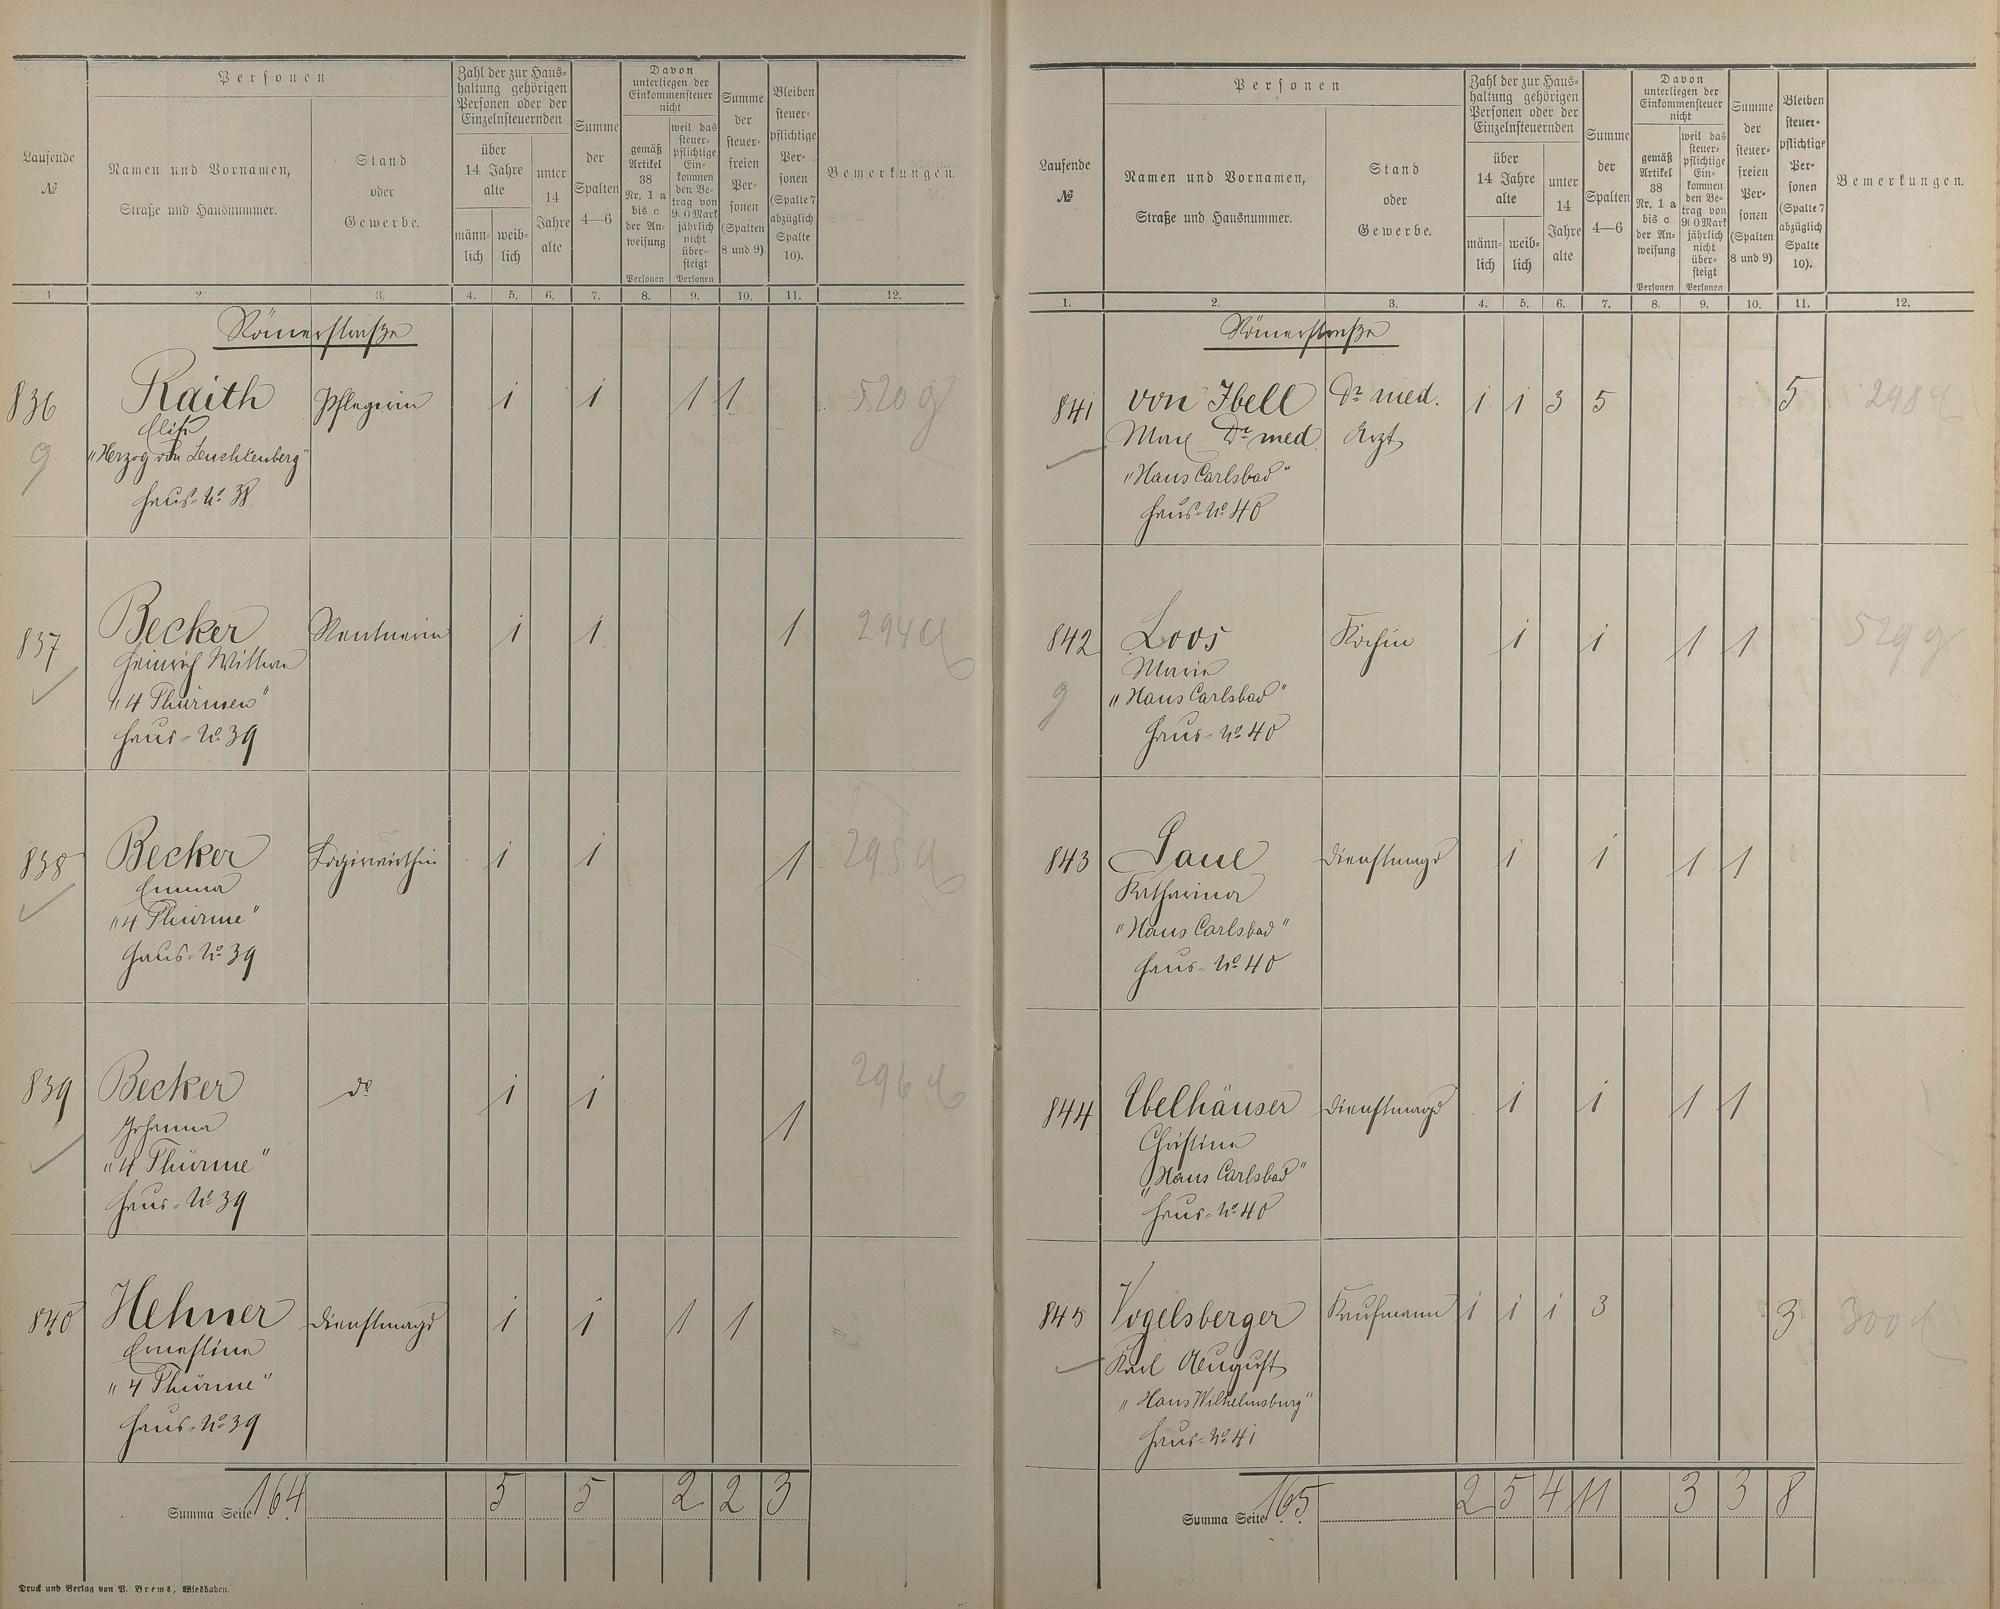 Laufende
№
Personen
Namen und Vornamen,
Straße und Hausnummer.
Stand
oder
Gewerbe.
Zahl der zur Haus-
haltung gehörigen
Personen oder der
Einzelnsteuernden
über
14 Jahre
alte
männ-
lich
weib-
lich
unter
14
Jahre
alte
Summe
der
Spalten
4—6
Davon
unterliegen der
Einkommensteuer
nicht
gemäß
Artikel
38
Nr. 1 a
bis c
der An-
weisung
Personen
weil das
steuer-
pflichtige
Ein-
kommen
den Be-
trag von
900 Mark
jährlich
nicht
über-
steigt
Personen
Summe
der
steuer-
freien
Per-
sonen
(Spalten
8 und 9)
Bleiben
steuer-
pflichtige
Per-
sonen
(Spalte 7
abzüglich
Spalte
10).
Bemerkungen.
1 2. 3. 4. 5. 6. 7. 8. 9. 10. 11. 12.
Römerstraße
836 Raith Pflegerin 1 1 1 1 520 g
g Elise
"Herzog von Leuchtenberg"
Haus-No 38
837 Becker Rentnerin 1 1 1 294
Heinrich Wittwe
"4 Thürmen"
Haus-No 39
838 Becker Logirwirthin 1 1 1 295
Emma
"4 Thürme"
Haus-No 39
839 Becker do 1 1 1 296
Johanna
"4 Thürme"
Haus-No 39
840 Hehner Dienstmagd 1 1 1 1
Ernestine
"4 Thürme"
Haus-No 39
Summa Seite 164 5 5 2 2 3
Druck und Verlag von P. Brems, Wiesbaden.
Laufende
№
Personen
Namen und Vornamen,
Straße und Hausnummer.
Stand
oder
Gewerbe.
Zahl der zur Haus-
haltung gehörigen
Personen oder der
Einzelnsteuernden
über
14 Jahre
alte
männ-
lich
weib-
lich
unter
14
Jahre
alte
Summe
der
Spalten
4—6
Davon
unterliegen der
Einkommensteuer
nicht
gemäß
Artikel
38
Nr. 1 a
bis c
der An-
weisung
Personen
weil das
steuer-
pflichtige
Ein-
kommen
den Be-
trag von
900 Mark
jährlich
nicht
über-
steigt
Personen
Summe
der
steuer-
freien
Per-
sonen
(Spalten
8 und 9)
Bleiben
steuer-
pflichtige
Per-
sonen
(Spalte 7
abzüglich
Spalte
10).
Bemerkungen.
1. 2. 3. 4. 5. 6. 7. 8. 9. 10. 11. 12.
Römerstraße
841 von Ibell Dr med. 1 1 3 5 5 298
Max Dr med Arzt
"Haus Carlsbad"
Haus-No 40
842 Loos Köchin 1 1 1 1 529 g
Marie
g "Haus Carlsbad"
Haus-No 40
843 Paul Dienstmagd 1 1 1 1
Katharina
"Haus Carlsbad"
Haus-No 40
844 Ebelhäuser Dienstmagd 1 1 1 1
Christine
"Haus Carlsbad"
Haus-No 40
845 Vogelsberger Kaufmann 1 1 1 3 3 300
Karl August
"Haus Wilhelmsburg"
Haus-No 41
Summa Seite 165 2 5 4 11 3 3 8